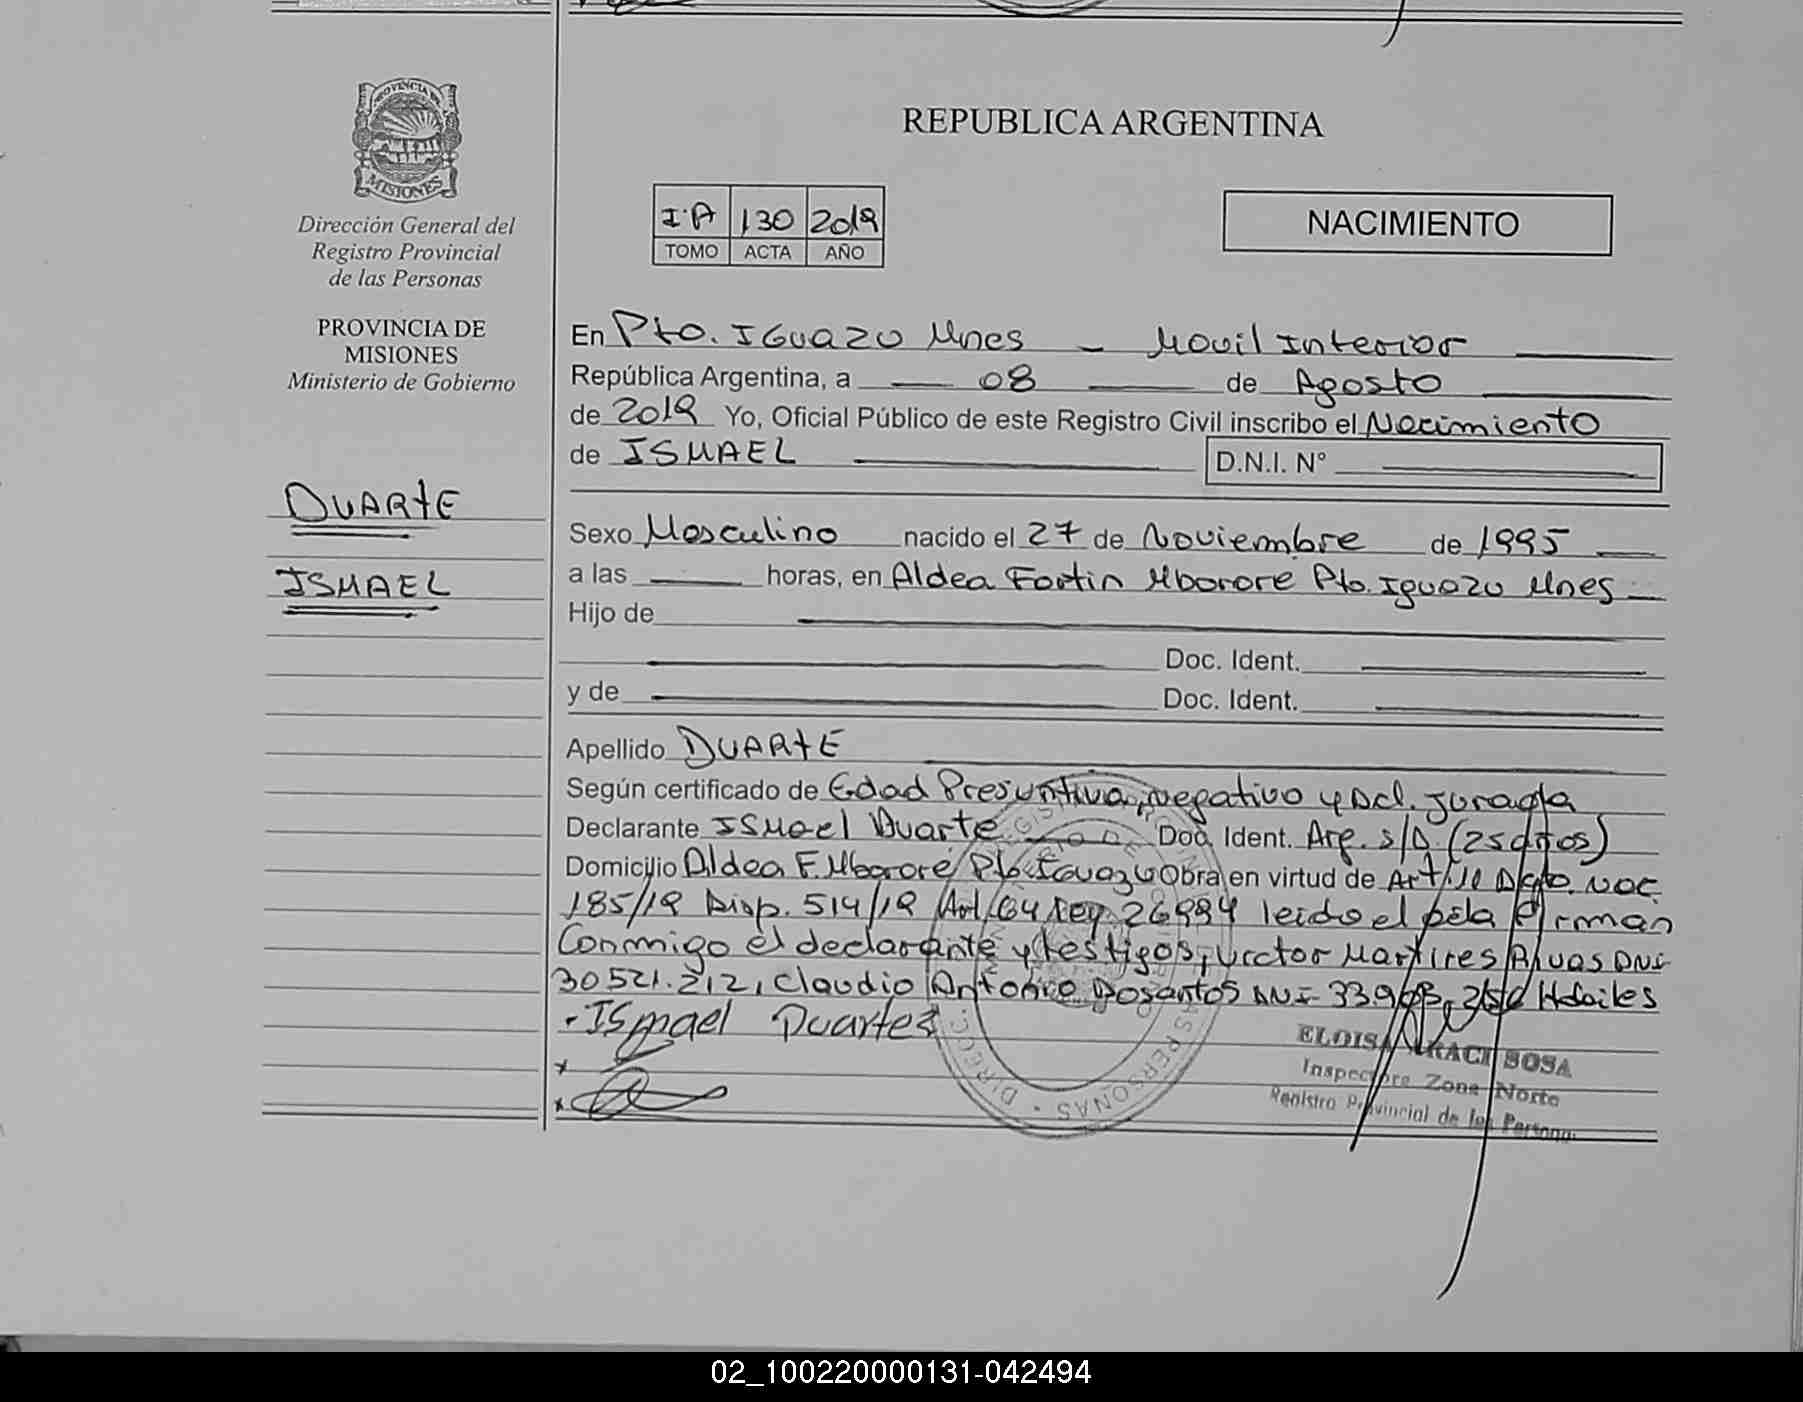 PROVINCIA DE
MISIONES
Dirección General del
Registro Provincial
de las Personas
PROVINCIA DE
MISIONES
Ministerio de Gobierno
DUARTE
ISMAEL
REPUBLICA ARGENTINA
I·A 130 2019
TOMO ACTA AÑO
NACIMIENTO
En Pto. IGuazu Mnes - Movil Interior
República Argentina, a 08 de Agosto
de 2019 Yo, Oficial Público de este Registro Civil inscribo el Nacimiento
de ISMAEL D.N.I. N°
Sexo Masculino nacido el 27 de Noviembre de 1995
a las horas, en Aldea Fortin Mborore Pto. Iguazu Mnes
Hijo de
Doc. Ident.
y de Doc. Ident.
Apellido DUARTE
Según certificado de Edad Presuntiva, negativo y Dcl. Jurada
Declarante ISmael Duarte Doc. Ident. Arg. s/D (25 años)
Domicilio Aldea F. Mbororé Pto Iguazu Obra en virtud de Art. Dcto. NAC.
185/19 Disp. 514/19 Art. 64 Ley 26994 leido el pela firman
Conmigo el declarante y testigos, Victor Martires Alvas DNI
30521.212, Claudio Antonio Dosantos DNI Habiles
ISmael Duartes
ELOISA ARACI SOSA
Inspectora Zona Norte
Registro Provincial de las Personas
02_100220000131-042494